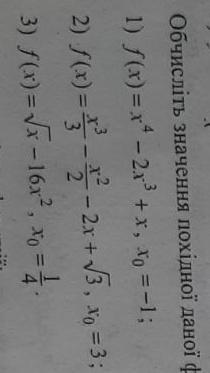 Обчисліть значення похідної даної ф
1) f(x) = x⁴ − 2x³ + x, x₀ = −1;
2) f(x) = x³/3 − x²/2 − 2x + √3, x₀ = 3;
3) f(x) = √x − 16x², x₀ = 1/4.